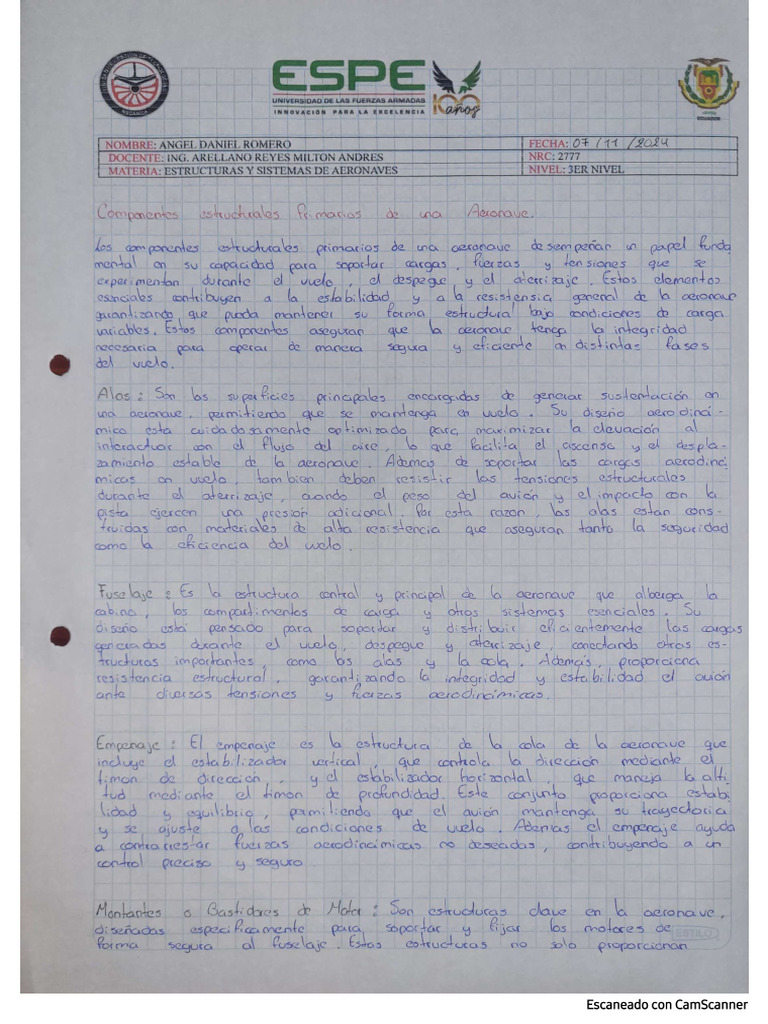 ESPE
UNIVERSIDAD DE LAS FUERZAS ARMADAS
INNOVACIÓN PARA LA EXCELENCIA
100 años
NOMBRE: ANGEL DANIEL ROMERO
FECHA: 07/11/2024
DOCENTE: ING. ARELLANO REYES MILTON ANDRES
NRC: 2777
MATERIA: ESTRUCTURAS Y SISTEMAS DE AERONAVES
NIVEL: 3ER NIVEL
Componentes estructurales Primarios de una Aeronave.
Los componentes estructurales primarios de una aeronave desempeñan un papel funda
mental en su capacidad para soportar cargas, fuerzas y tensiones que se
experimentan durante el vuelo, el despegue y el aterrizaje. Estos elementos
esenciales contribuyen a la estabilidad y a la resistensia general de la aeronave
garantizando que pueda mantener su forma estructural bajo condiciones de carga
variables. Estos componentes aseguran que la aeronave tenga la integridad
necesaria para operar de manera segura y eficiente en distintas fases
del vuelo.
Alas: Son las superficies principales encargadas de generar sustentación en
una aeronave, permitiendo que se mantenga en vuelo. Su diseño aerodiná-
mico esta cuidadosamente optimizado para maximizar la elevación al
interactuar con el flujo del aire, lo que facilita el ascenso y el despla-
zamiento estable de la aeronave. Ademas de soportar las cargas aerodiná
micas en vuelo, tambien deben resistir las tensiones estructurales
durante el aterrizaje, cuando el peso del avión y el impacto con la
pista ejercen una presión adicional. Por esta razón, las alas estan cons-
truidas con materiales de alta resistencia que aseguran tanto la seguridad
como la eficiencia del vuelo.
Fuselaje: Es la estructura central y principal de la aeronave que alberga la
cabina, los compartimentos de carga y otros sistemas esenciales. Su
diseño está pensado para soportar y distribuir eficientemente las cargas
generadas durante el vuelo, despegue y aterrizaje, conectando otras es-
tructuras importantes, como las alas y la cola. Además, proporciona
resistencia estructural, garantizando la integridad y estabilidad el avión
ante diversas tensiones y fuerzas aerodinámicas.
Empenaje: El empenaje es la estructura de la cola de la aeronave que
incluye el estabilizador vertical, que controla la dirección mediante el
timon de dirección, y el estabilizador horizontal, que maneja la alti
tud mediante el timon de profundidad. Este conjunto proporciona estabi
lidad y equilibrio, permitiendo que el avión mantenga su trayectoria
y se ajuste a las condiciones de vuelo. Ademas el empenaje ayuda
a contrarrestar fuerzas aerodinámicas no deseadas, contribuyendo a un
control preciso y seguro
Montantes o Bastidores de Motor: Son estructuras clave en la aeronave,
diseñadas especificamente para soportar y fijar los motores de
forma segura al fuselaje. Estas estructuras no solo proporcionan
ESTILO
Escaneado con CamScanner